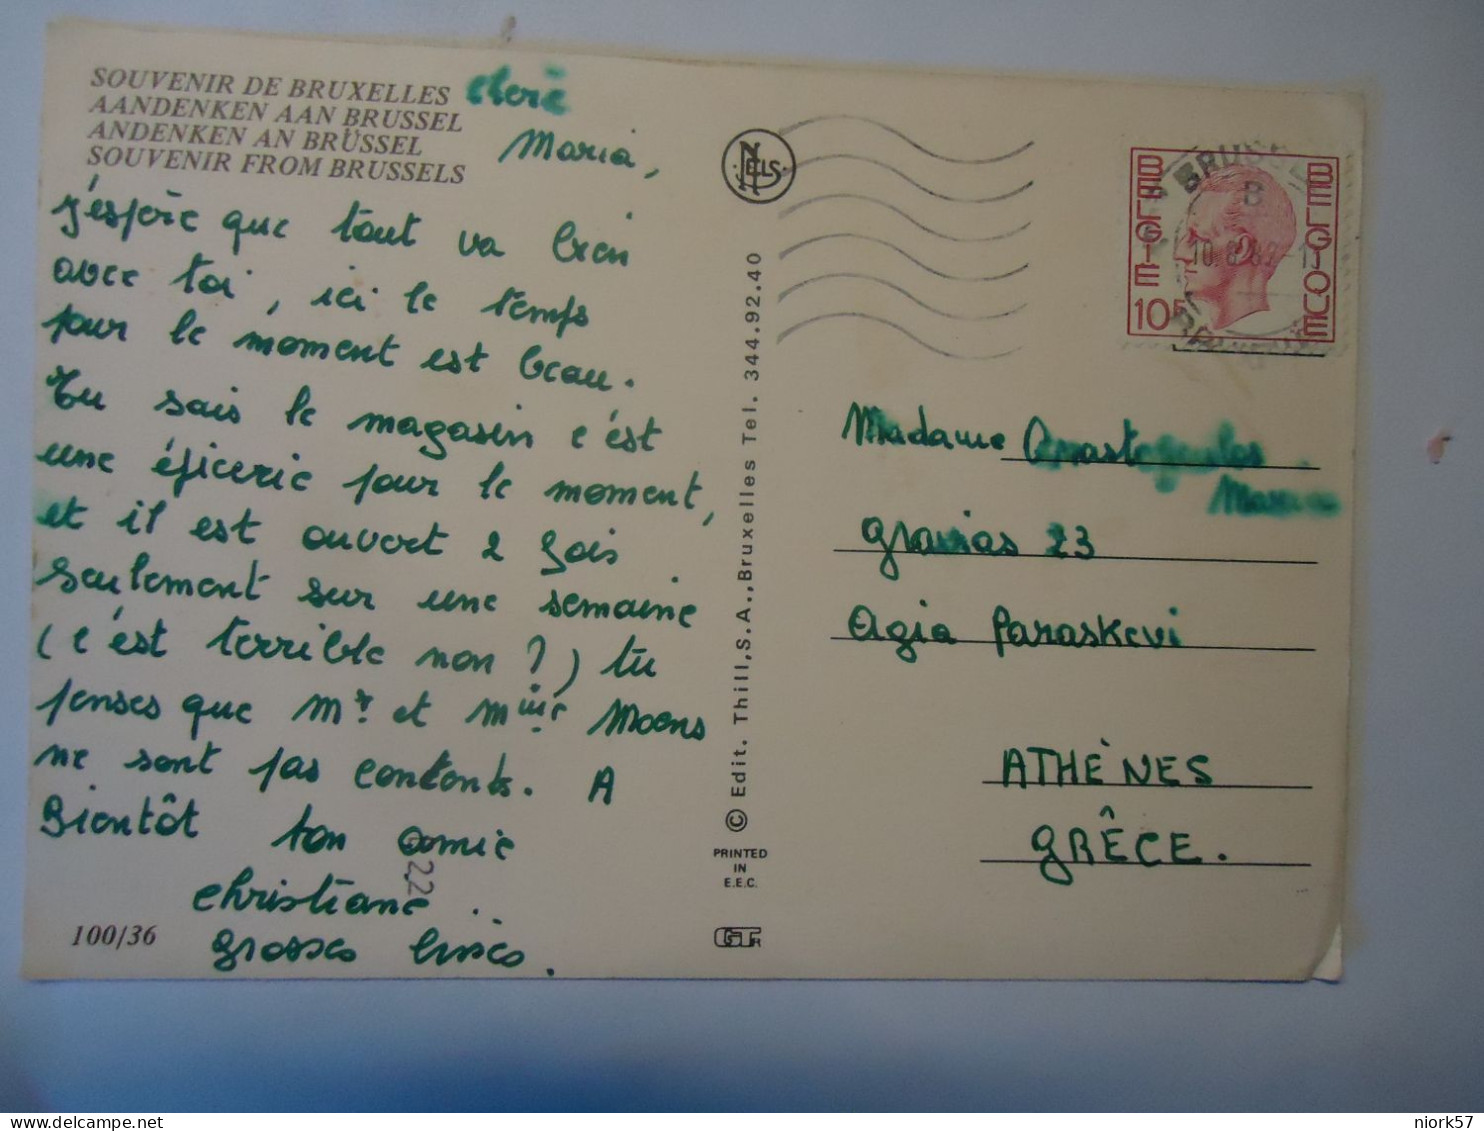 SOUVENIR DE BRUXELLES
AANDENKEN AAN BRUSSEL
ANDENKEN AN BRÜSSEL
SOUVENIR FROM BRUSSELS
chère
Maria,
j'espère que tout va bien
avec toi, ici le temps
pour le moment est beau.
Tu sais le magasin c'est
une épicerie pour le moment,
et il est ouvert 2 fois
seulement sur une semaine
(c'est terrible non ?) tu
penses que Mr. et Mme Moens
ne sont pas contents. A
Bientôt ton amie
Christiane.
grosses bises.
22
100/36
NELS
© Edit. Thill, S.A., Bruxelles Tel. 344.92.40
PRINTED
IN
E.E.C.
BELGIE
BELGIQUE
10F
BRUSSEL
B
Madame
23
Agia Paraskevi
ATHÈNES
GRÊCE.
niork57